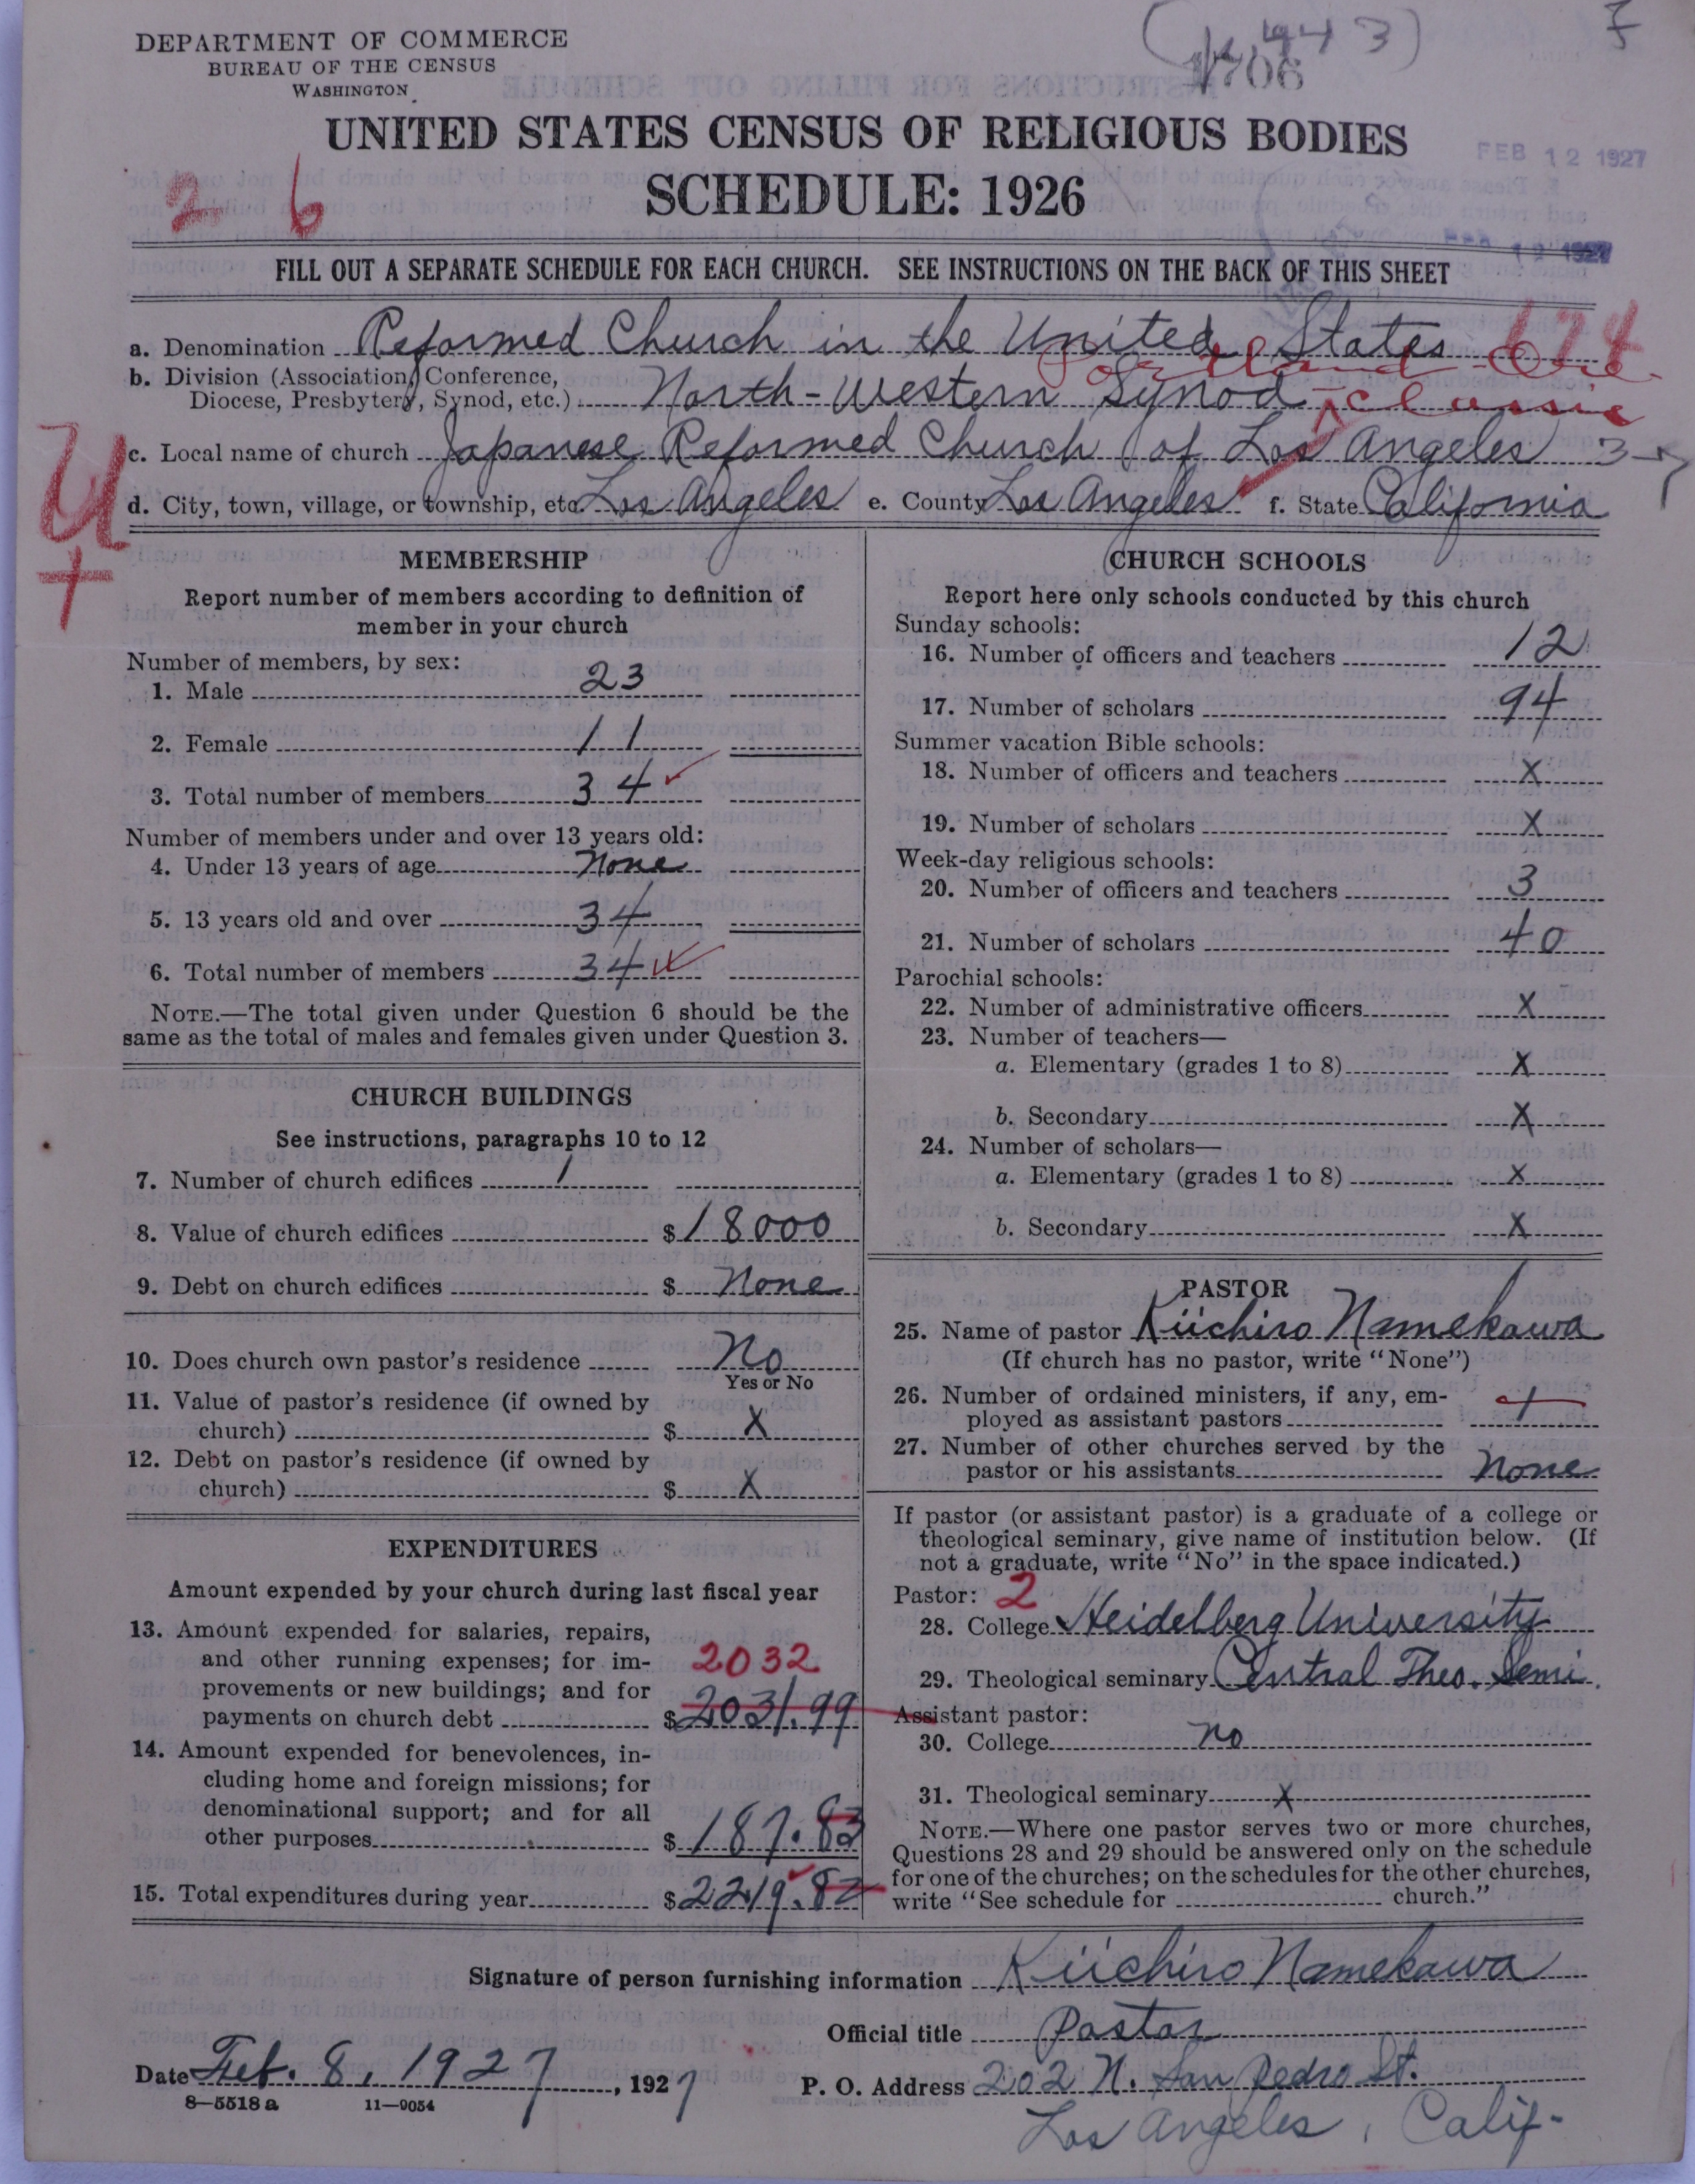 DEPARTMENT OF COMMERCE
BUREAU OF THE CENSUS
WASHINGTON
UNITED STATES CENSUS OF RELIGIOUS BODIES
SCHEDULE: 1926
FEB 12 1927
2 6
FILL OUT A SEPARATE SCHEDULE FOR EACH CHURCH. SEE INSTRUCTIONS ON THE BACK OF THIS SHEET
a. Denomination Reformed Church in the United States
b. Division (Association, Conference, Diocese, Presbytery, Synod, etc.) North-Western Synod Portland-Ore. Classis
c. Local name of church Japanese Reformed Church of Los Angeles
d. City, town, village, or township, etc. Los Angeles e. County Los Angeles f. State California
MEMBERSHIP
Report number of members according to definition of
member in your church
Number of members, by sex:
1. Male 23
2. Female 11
3. Total number of members 34
Number of members under and over 13 years old:
4. Under 13 years of age None
5. 13 years old and over 34
6. Total number of members 34
NOTE.—The total given under Question 6 should be the
same as the total of males and females given under Question 3.
CHURCH BUILDINGS
See instructions, paragraphs 10 to 12
7. Number of church edifices 1
8. Value of church edifices $ 18000
9. Debt on church edifices $ None
10. Does church own pastor's residence No
Yes or No
11. Value of pastor's residence (if owned by
church) $ X
12. Debt on pastor's residence (if owned by
church) $ X
EXPENDITURES
Amount expended by your church during last fiscal year
13. Amount expended for salaries, repairs,
and other running expenses; for im- 2032
provements or new buildings; and for
payments on church debt $ 2031.99
14. Amount expended for benevolences, in-
cluding home and foreign missions; for
denominational support; and for all
other purposes $ 187.83
15. Total expenditures during year $ 2219.82
CHURCH SCHOOLS
Report here only schools conducted by this church
Sunday schools:
16. Number of officers and teachers 12
17. Number of scholars 94
Summer vacation Bible schools:
18. Number of officers and teachers X
19. Number of scholars X
Week-day religious schools:
20. Number of officers and teachers 3
21. Number of scholars 40
Parochial schools:
22. Number of administrative officers X
23. Number of teachers—
a. Elementary (grades 1 to 8) X
b. Secondary X
24. Number of scholars—
a. Elementary (grades 1 to 8) X
b. Secondary X
PASTOR
25. Name of pastor Kiichiro Namekawa
(If church has no pastor, write "None")
26. Number of ordained ministers, if any, em-
ployed as assistant pastors 1
27. Number of other churches served by the
pastor or his assistants None
If pastor (or assistant pastor) is a graduate of a college or
theological seminary, give name of institution below. (If
not a graduate, write "No" in the space indicated.)
Pastor: 2
28. College Heidelberg University
29. Theological seminary Central Theo. Semi.
Assistant pastor:
30. College no
31. Theological seminary X
NOTE.—Where one pastor serves two or more churches,
Questions 28 and 29 should be answered only on the schedule
for one of the churches; on the schedules for the other churches,
write "See schedule for church."
Signature of person furnishing information Kiichiro Namekawa
Official title Pastor
Date Feb. 8, 1927, 1927
P. O. Address 202 N. San Pedro St.
Los Angeles, Calif.
8—5518a 11—9054